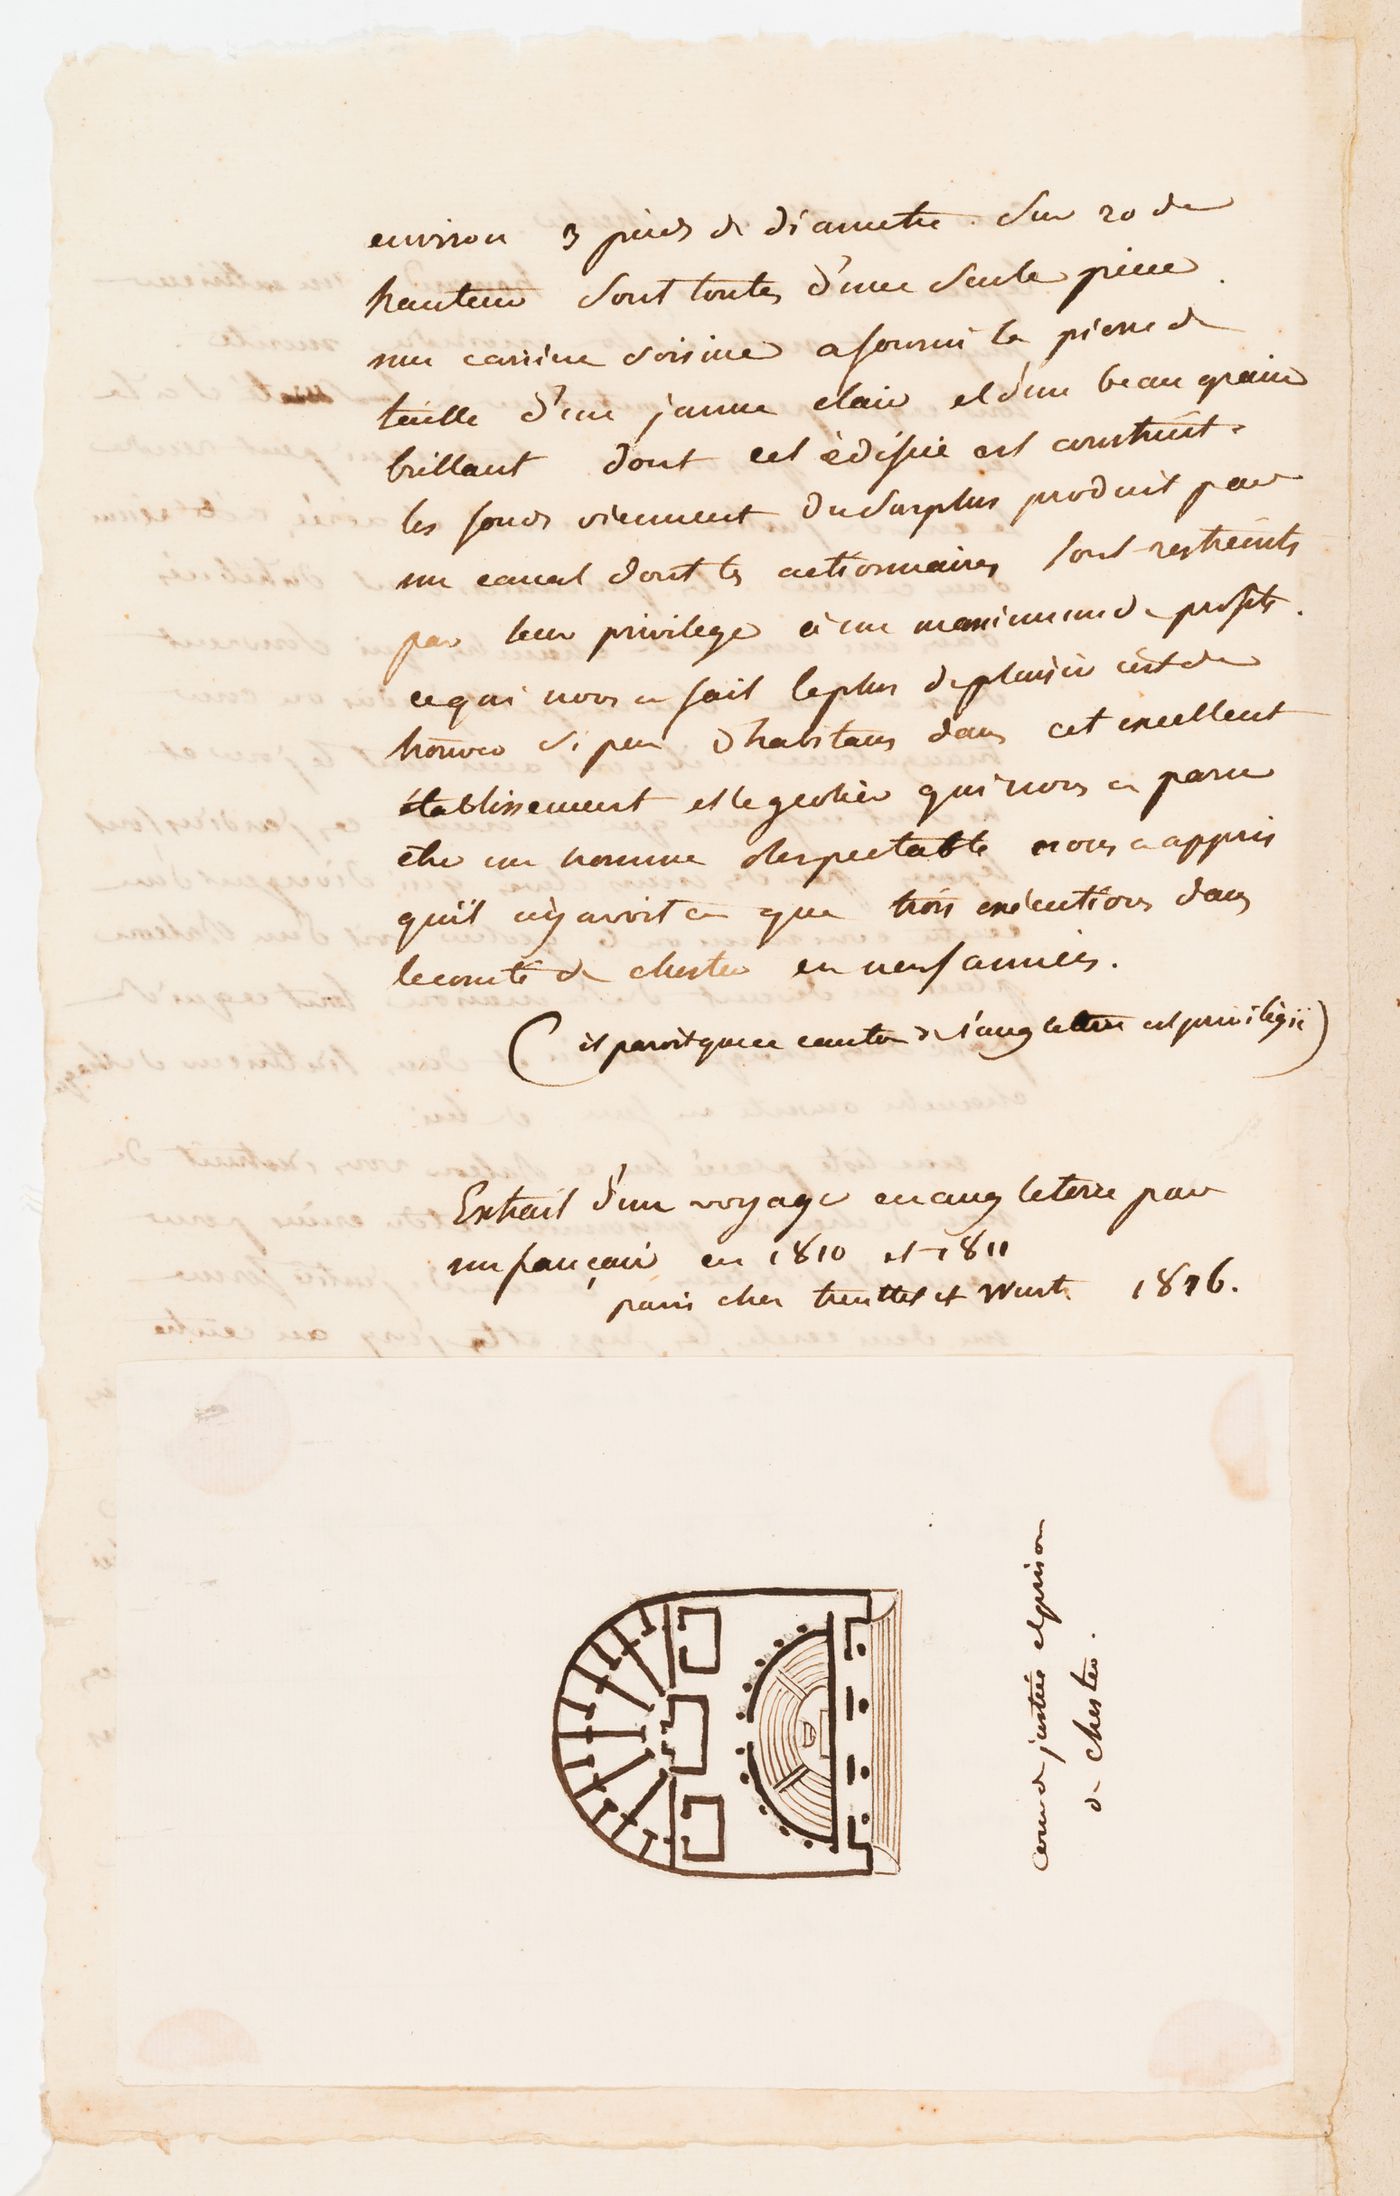 environ 3 pieds de diametre. Sur 20 de
hauteur sont toutes d'une seule piece.
une carriere voisine a fourni la pierre de
taille d'un jaune clair et d'un beau grain
brillant dont cet édifice est construit.
les fonds viennent du surplus produit par
un canal dont les actionnaires sont restreints
par leur privilege à un maximum de profits.
ce qui nous a fait le plus de plaisir c'est de
trouver si peu d'habitans dans cet excellent
établissement et le geolier qui nous a paru
etre un homme respectable nous a appris
qu'il n'y avoit eu que trois exécutions dans
le comté de chester en neuf années.
(il paroit que ce canton de l'angleterre est privilégié)
Extrait d'un voyage en angleterre par
un français en 1810 et 1811
paris chez treuttel et Wurtz 1816.
cour de justice et prison
de chester.